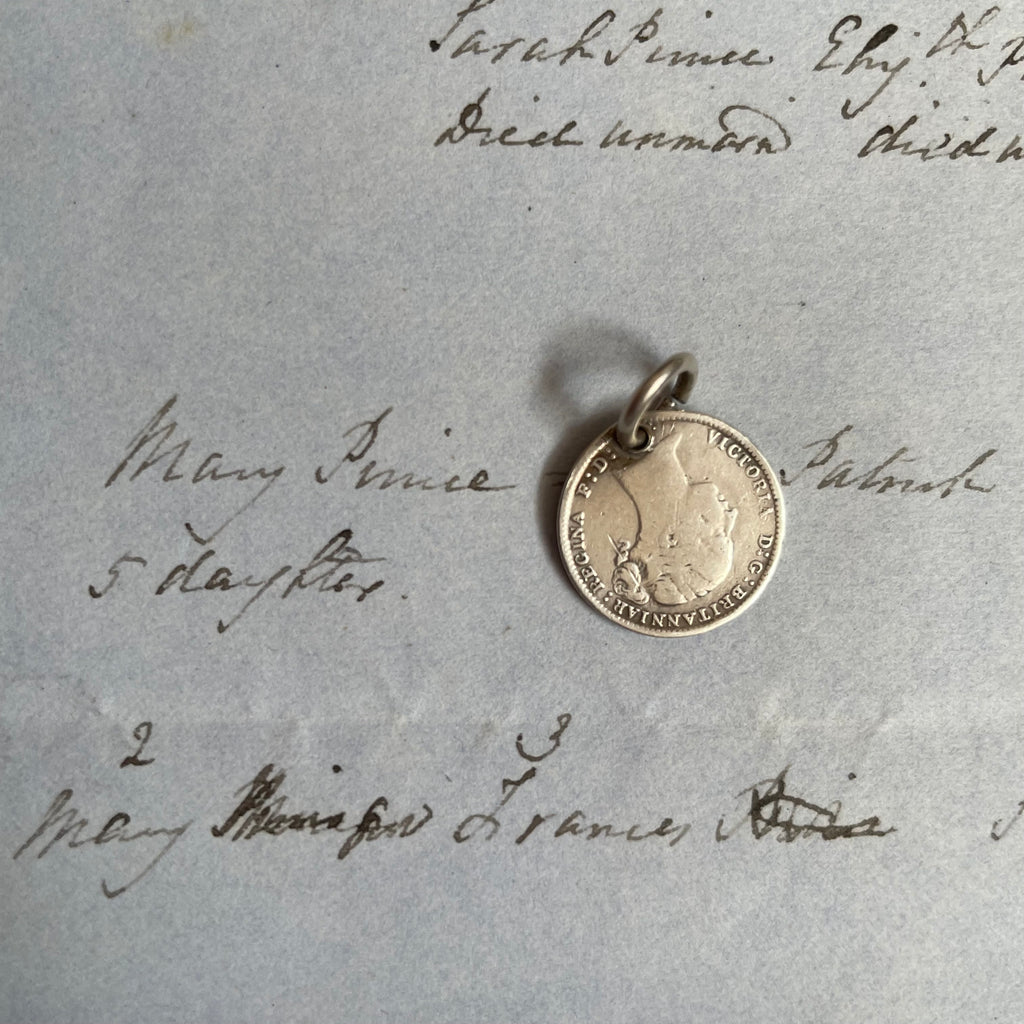 Sarah Prince Eliz.th
Died unmarrd died
Mary Prince Patrick
5 daughters.
2 3
Mary Frances
VICTORIA D:G:BRITANNIAR:REGINA F:D: